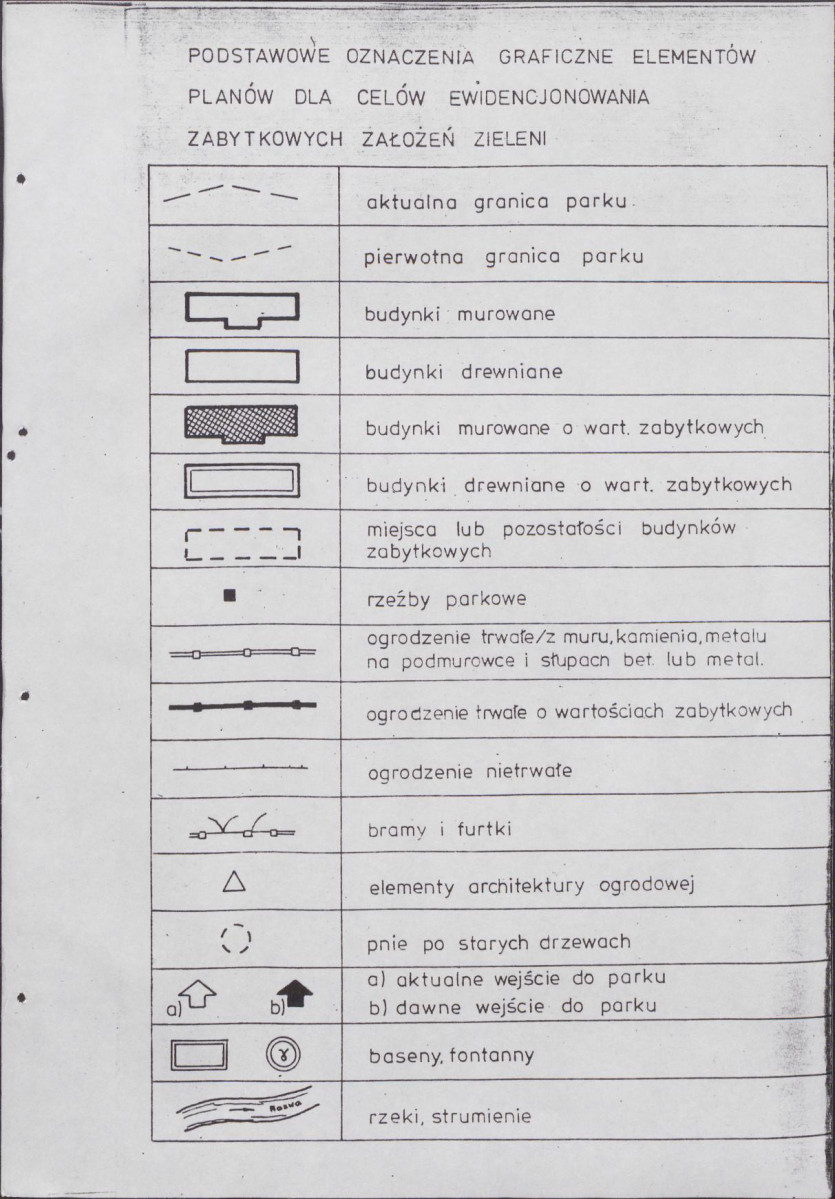 PODSTAWOWE OZNACZENIA GRAFICZNE ELEMENTÓW
PLANÓW DLA CELÓW EWIDENCJONOWANIA
ZABYTKOWYCH ZAŁOŻEŃ ZIELENI
aktualna granica parku
pierwotna granica parku
budynki murowane
budynki drewniane
budynki murowane o wart. zabytkowych
budynki drewniane o wart. zabytkowych
miejsca lub pozostałości budynków
zabytkowych
rzeźby parkowe
ogrodzenie trwałe/z muru, kamienia, metalu
na podmurowce i słupach bet. lub metal.
ogrodzenie trwałe o wartościach zabytkowych
ogrodzenie nietrwałe
bramy i furtki
elementy architektury ogrodowej
pnie po starych drzewach
a) b) a) aktualne wejście do parku
b) dawne wejście do parku
baseny, fontanny
Nazwa
rzeki, strumienie